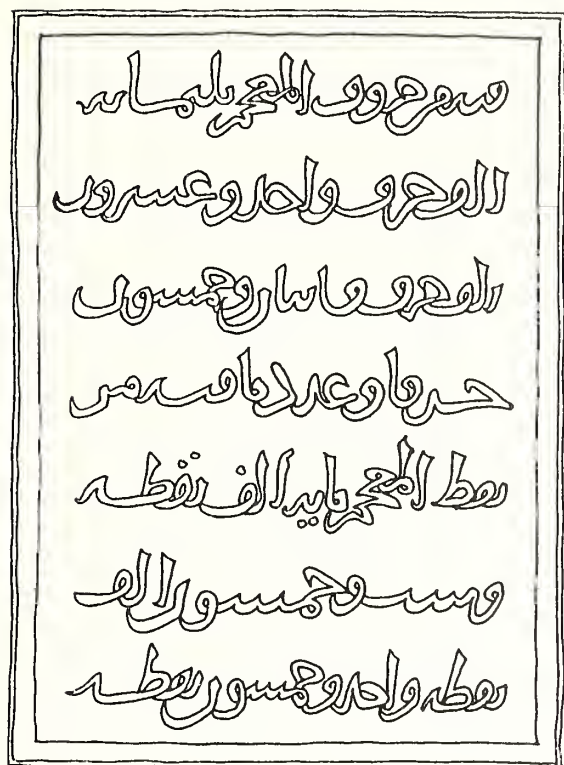 فيه من حروف المعجم ثلثمايه
الف حرف وواحد وعشرون
الف حرف ومايتان وخمسون
حرفا وعدد ما فيه من
نقط المعجم مايه الف نقطه
وست وخمسون الف
نقطه واحد وخمسون نقطه